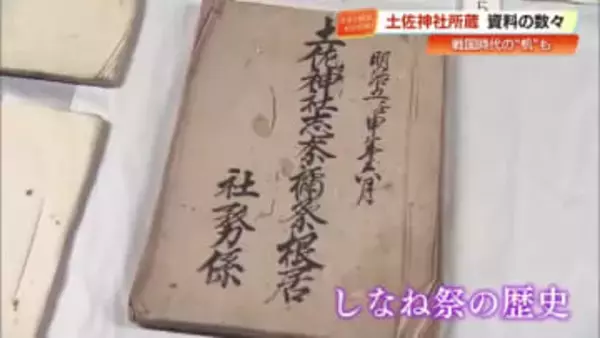 土佐神社所蔵 資料の数々
戦国時代の“机”も
土佐神社志奈禰祭根居
社務係
しなね祭の歴史